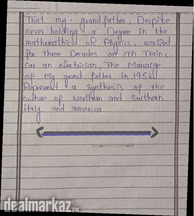 That my grand father, Despite
never holding a Degree in the
mathematics of Physics, worked
for three Decades on Trains
as an electrician, The Marriage
of My grand father in 1952
Represent a synthesis of the
culture of Northern and Southern
italy and america
dealmarkaz